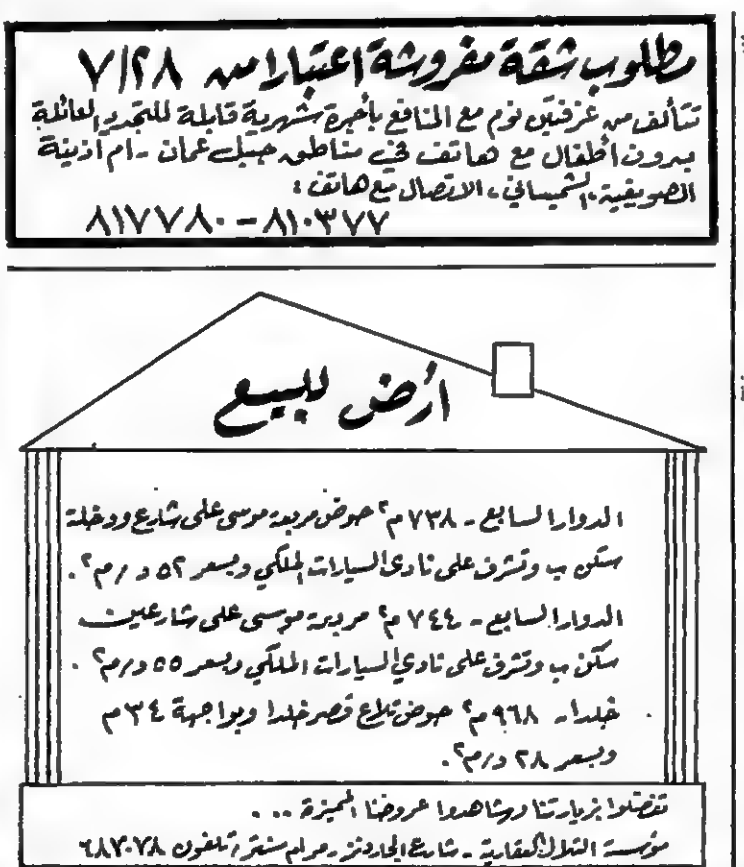 مطلوب شقة مفروشة اعتبارا من ٧/٢٨
تتألف من غرفتين نوم مع المنافع بأجرة شهرية قابلة للتجدد لعائلة
بدون أطفال مع هاتف في مناطق جبل عمان - ام اذينة
الصويفية، الشميساني، الاتصال مع هاتف :
٨١٧٧٨٠ - ٨١٠٣٧٧
أرض للبيع
الدوار السابع - ٧٣٨ م٢ حوض مربعة موسى على شارع ودخلة
سكن ب وتشرف على نادي السيارات الملكي وبسعر ٥٢ د/م٢.
الدوار السابع - ٧٤٤ م٢ مربعة موسى على شارعين
سكن ب وتشرف على نادي السيارات الملكي وبسعر ٥٥ د/م٢.
خلدا - ٩٦٨ م٢ حوض تلاع قصر خلدا وبواجهة ٣٤ م
وبسعر ٢٨ د/م٢.
تفضلوا بزيارتنا وشاهدوا عروضنا المميزة ...
مؤسسة التلال العقارية - شارع الجاردنز - مرام سنتر / تلفون ٦٨٧٠٧٨